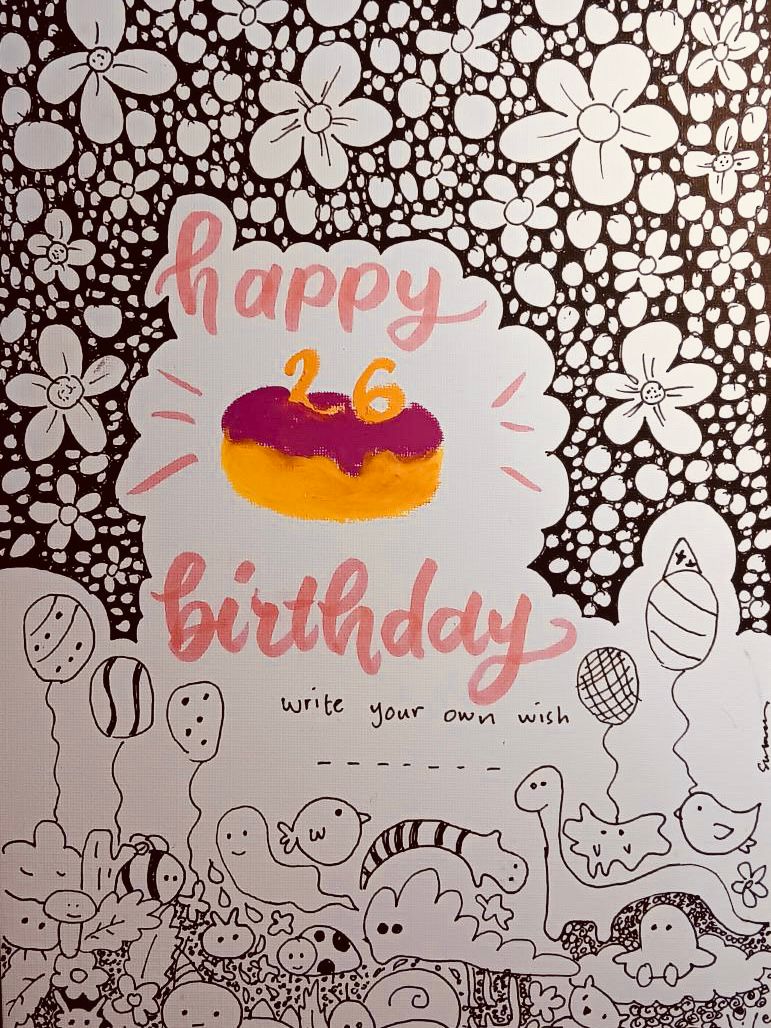 happy
26
birthday
write your own wish
w